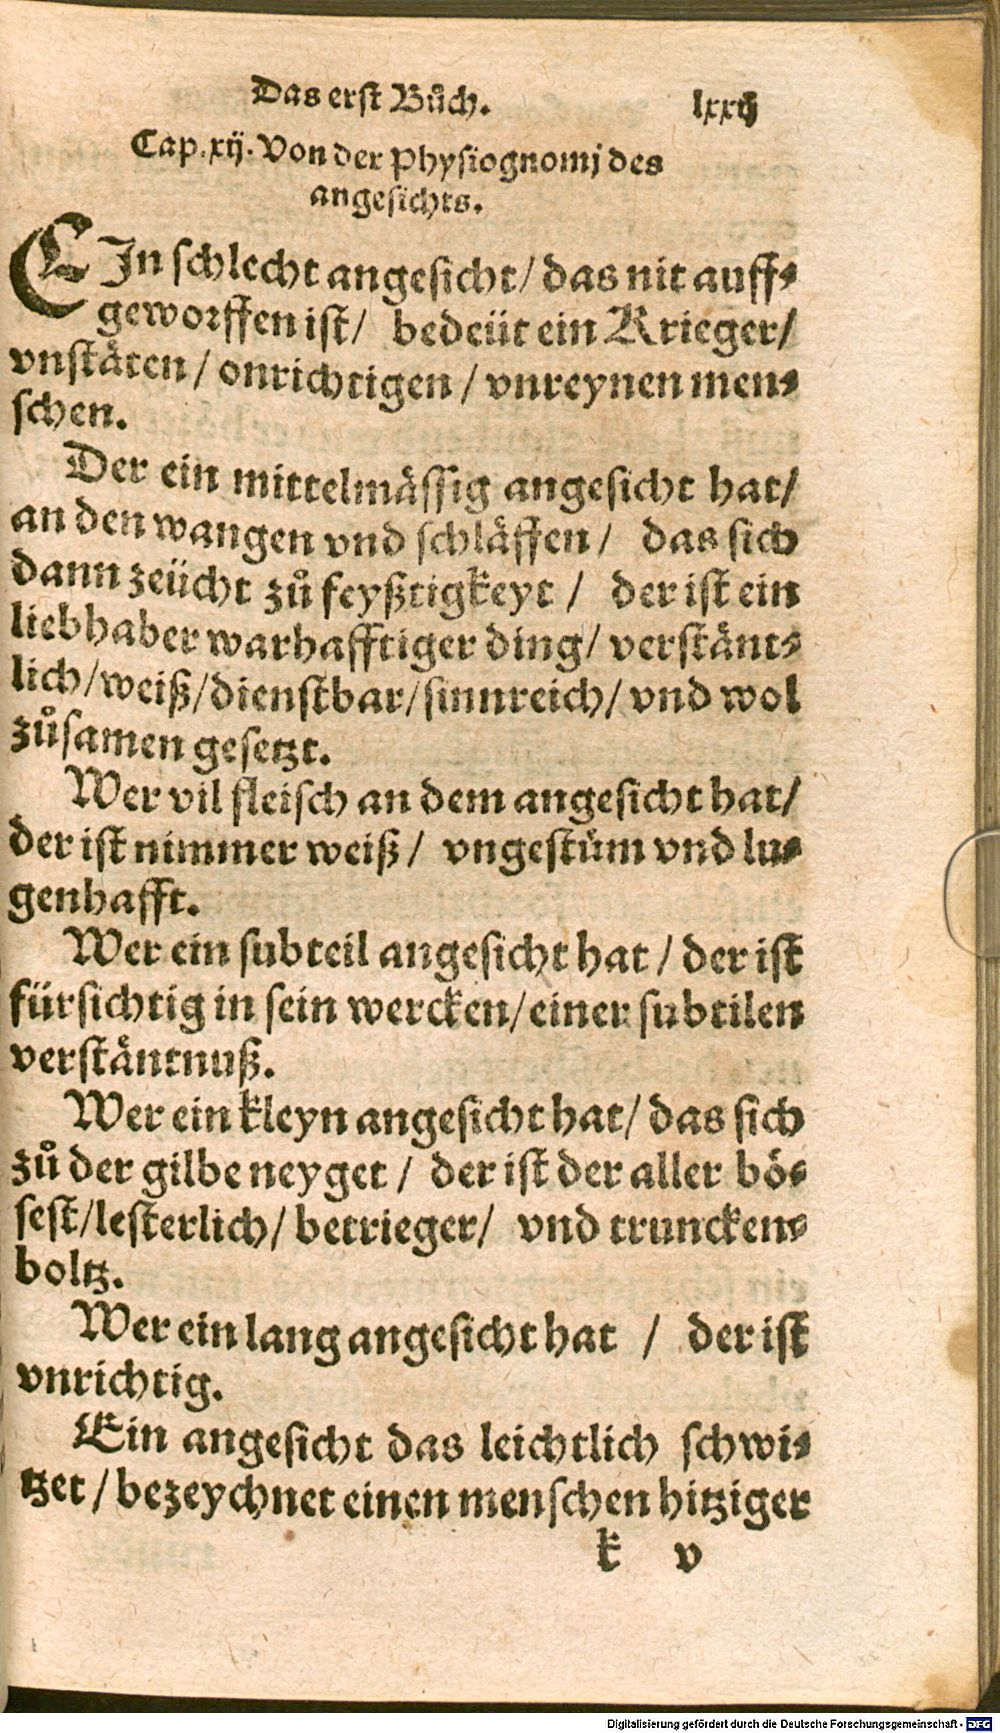 Das erst Bůch. lxxij
Cap. xij. Von der Physiognomj des
angesichts.
EIn schlecht angesicht / das nit auff⸗
geworffen ist / bedeüt ein Krieger /
vnstäten / onrichtigen / vnreynen men⸗
schen.
Der ein mittelmässig angesicht hat /
an den wangen vnd schläffen / das sich
dann zeücht zů feyßtigkeyt / der ist ein
liebhaber warhafftiger ding / verstänt⸗
lich / weiß / dienstbar / sinnreich / vnd wol
zůsamen gesetzt.
Wer vil fleisch an dem angesicht hat /
der ist nimmer weiß / vngestüm vnd lu⸗
genhafft.
Wer ein subteil angesicht hat / der ist
fürsichtig in sein wercken / einer subtilen
verstäntnuß.
Wer ein kleyn angesicht hat / das sich
zů der gilbe neyget / der ist der aller bö⸗
sest / lesterlich / betrieger / vnd truncken⸗
boltz.
Wer ein lang angesicht hat / der ist
vnrichtig.
Ein angesicht das leichtlich schwi⸗
tzet / bezeychnet einen menschen hitziger
k v
Digitalisierung gefördert durch die Deutsche Forschungsgemeinschaft - DFG